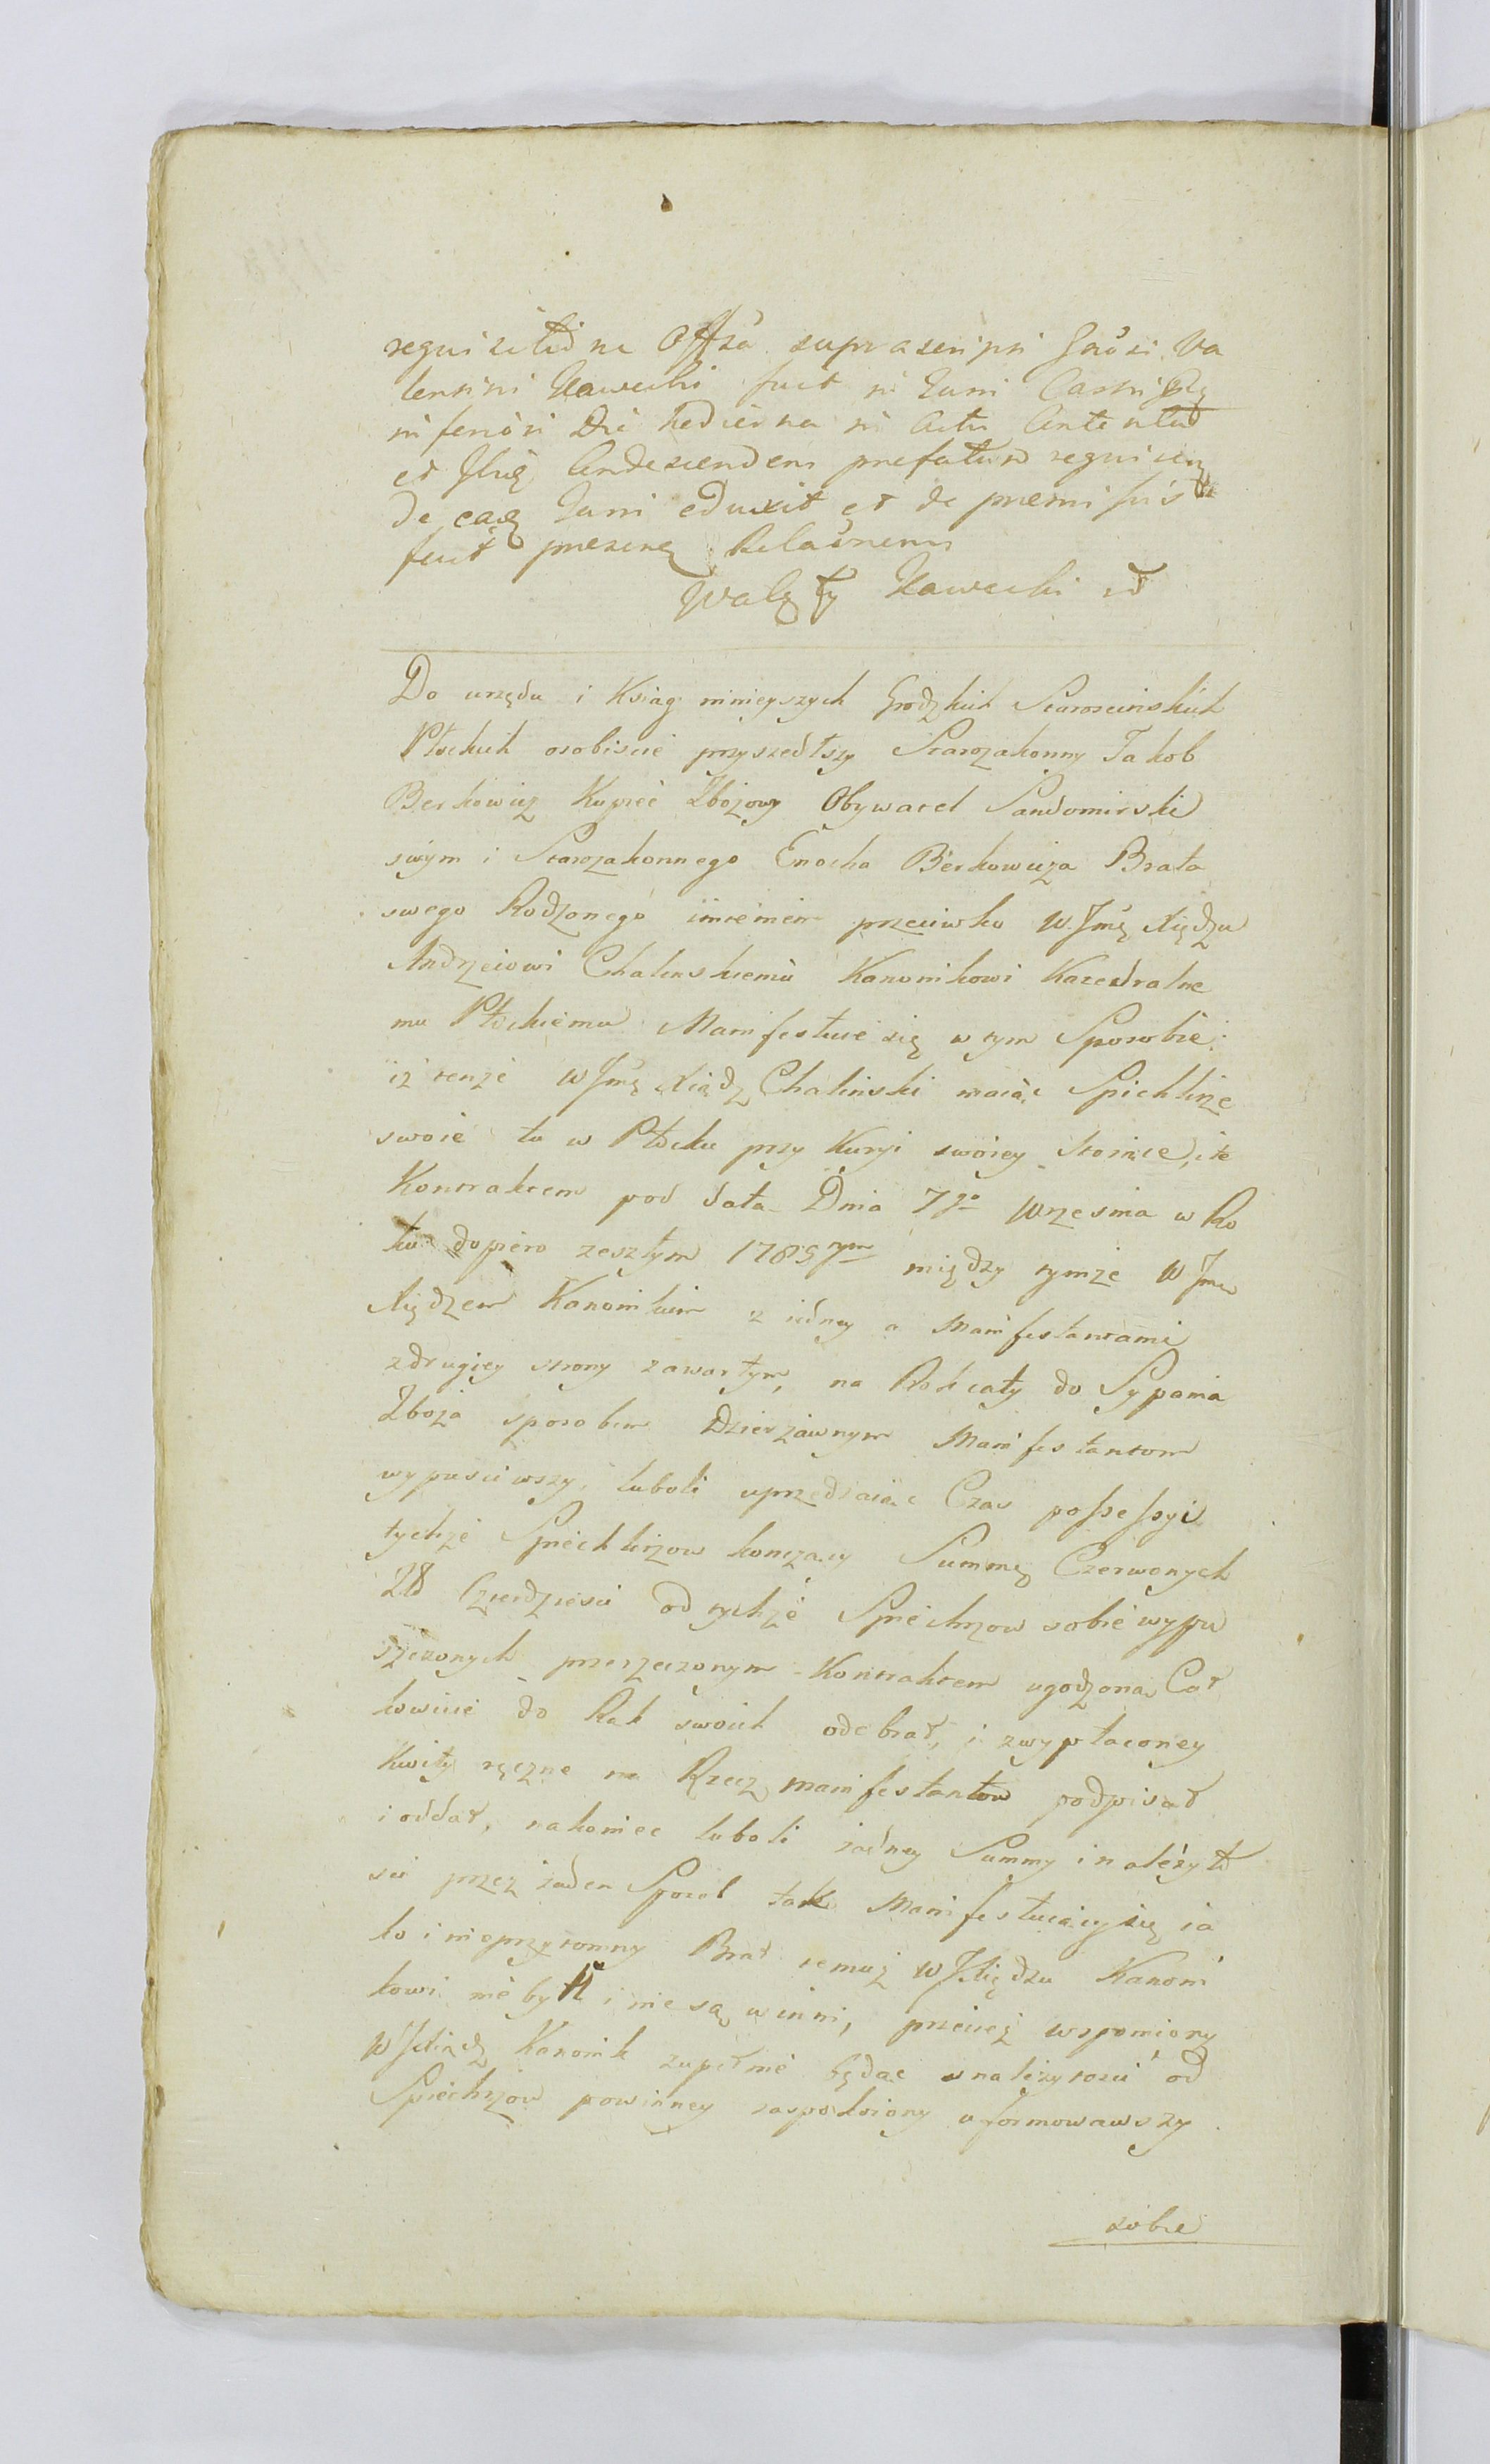 requisitio ne Offsa suprascripti Gnosi Va
lentini Kawecki fuit in Turri Castri
inferiori Die hodierna in Actu
et Andescendem prefatum
de Turri eduxit et de premissis
fecit presens Relaonem
Walęty Kawecki
Do urzędu i Ksiąg ninieyszych Grodzkich Starościńskich
Płockich osobiscie przyszedłszy Starozakonny Jakob
Berkowicz Kupiec Zbożowy Obywatel Sandomirski
swym i Starozakonnego Enocha Berkowicza Brata
swego Rodzonego imieniem przeciwko W. Jmę Xiędzu
Andrzeiowi Chalinskiemu Kanonikowi Katedralne
mu Płockiemu Manifestuie się w tym Sposobie:
iż tenże W Jmę Xiądz Chalinski maiąc Spichlirze
swoie tu w Płocku przy Kuryi swoiey stoiące, i te
Kontraktem pod datą Dnia 7go Wrzesnia w Ro
ku dopiero zeszłym 1789tym między tymże W Jmę
Xiędzem Kanonikim z iedney a Manifestantami
z drugiey strony zawartym, na Rok cały do Sypania
Zboża sposobem Dzierżawnym Manifestantom
wypusciwszy, luboli uprzedzaiąc Czas possessyi
tychże Spichlirzow konczący Summę Czerwonych
Zł Czterdziesci od tychże Spichrzow sobie wypu
szczonych przerzeczonym Kontraktem ugodzoną Cał
kowicie do Rąk swoich odebrał, i z wypłaconey
Kwity ręczne na Rzecz manifestantow podpisał
i oddał, nakoniec luboli żadney Summy i należyto
sci przez żaden Sposob tak Manifestuiący się ia
ko i nieprzytomny Brat temuż W JXiędzu Kanoni
kowi nie byli i nie są winni, przecież wspomiony
W JXiądz Kanonik zupełnie będąc z należytosci od
Spichrzow powinney zaspokoiony uformowawszy
sobie